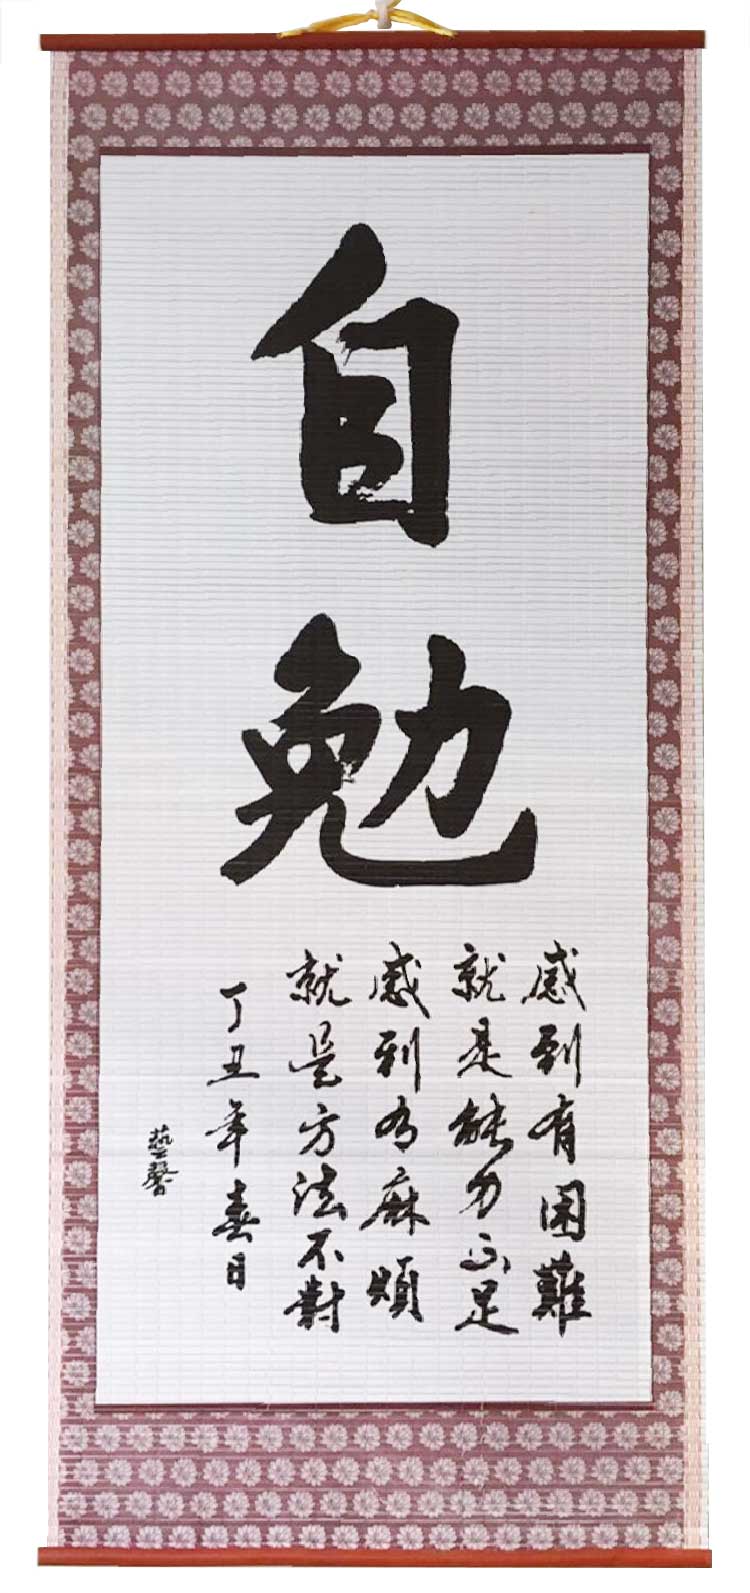 自勉
感到有困難
就是能力不足
感到有麻煩
就是方法不對
丁丑年春日
藝馨